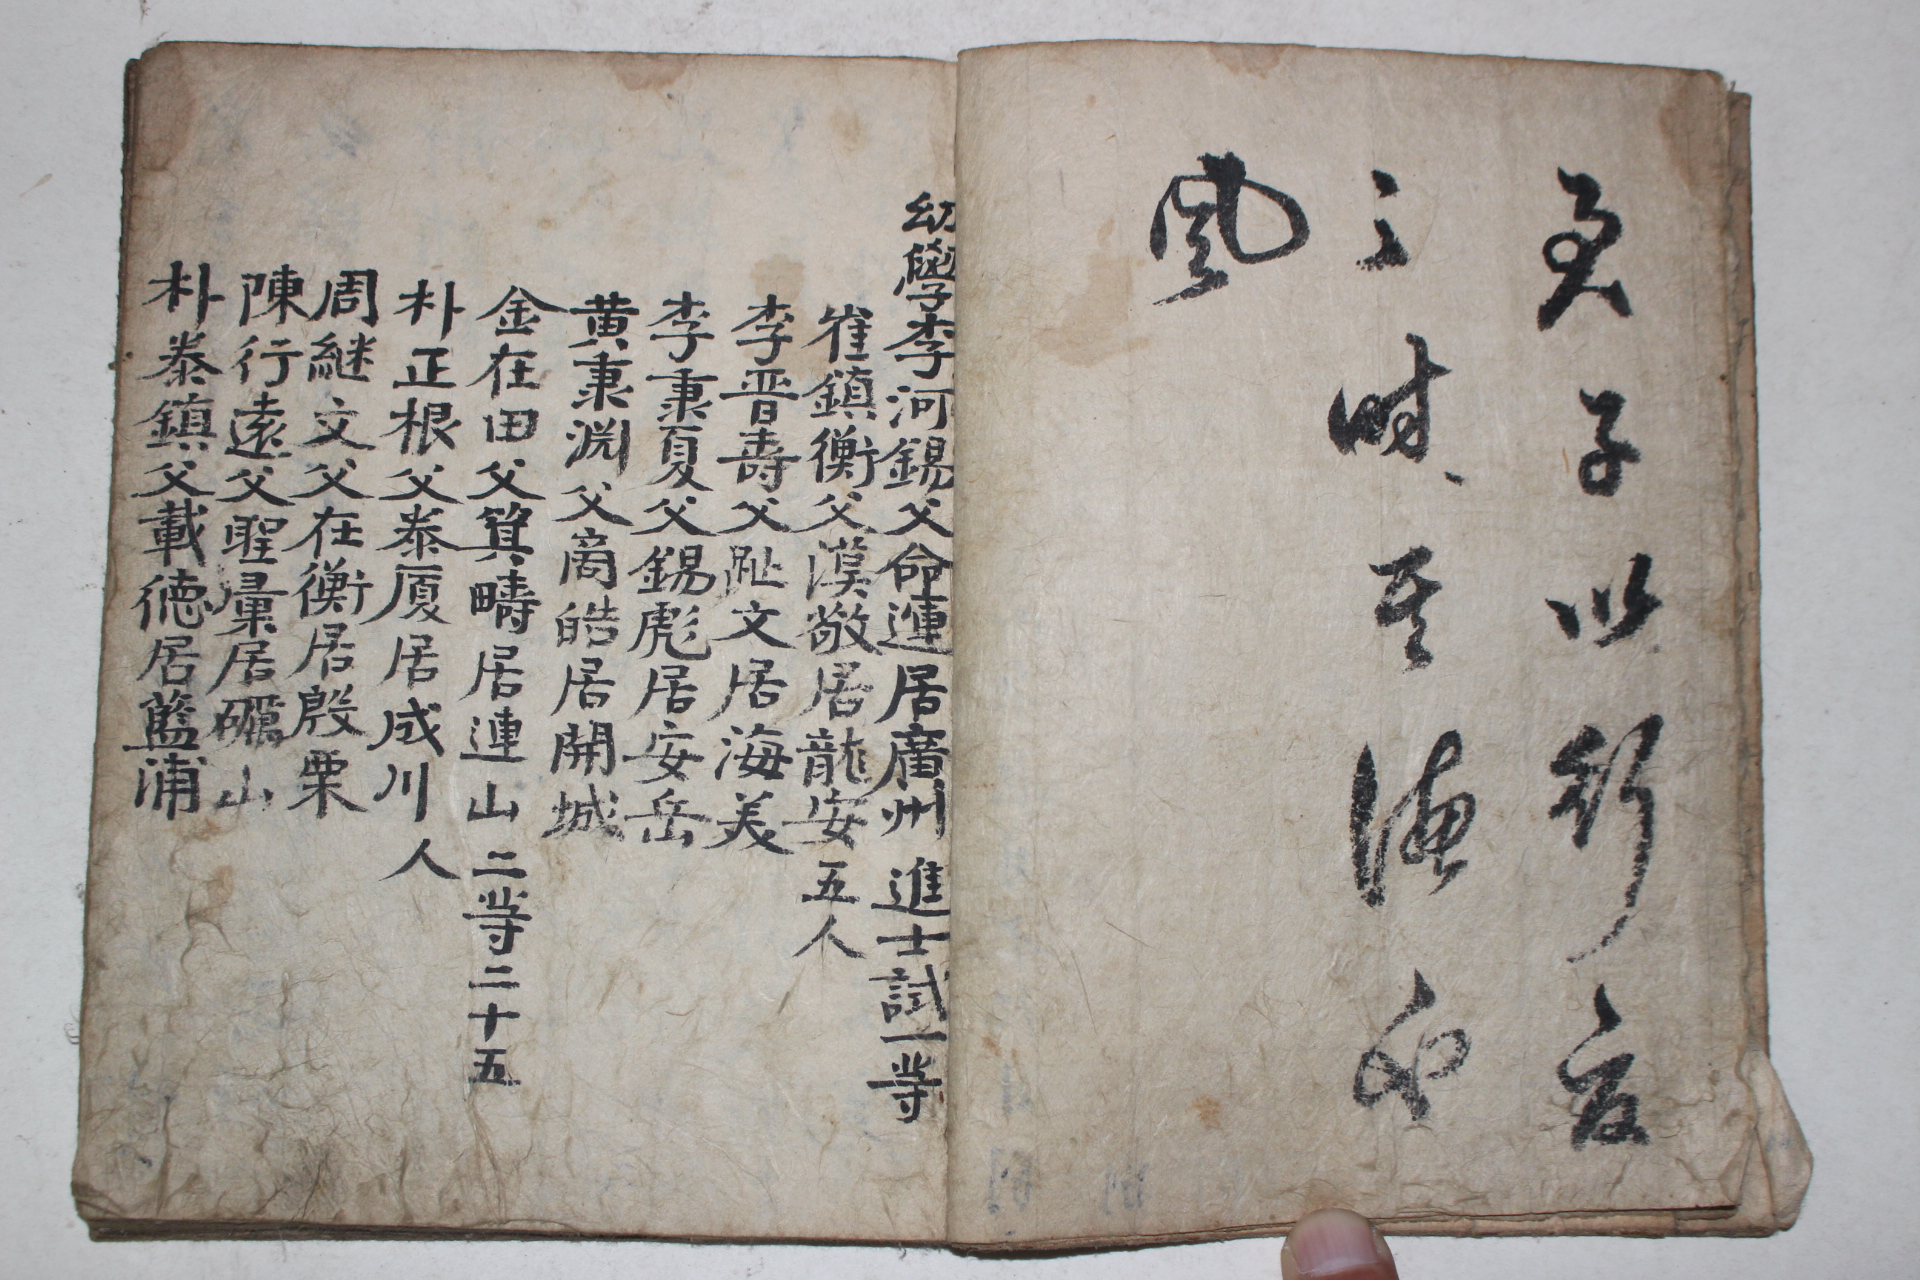 子以
之時至
風
幼學李河錫父命運居廣州 進士試一等
崔鎮衡父漠敞居龍安 五人
李晋壽父趾文居海美
李秉夏父錫彪居安岳
黄秉淵父商皓居開城
金在田父箕疇居連山 二等二十五
朴正根父泰厦居成川 人
周継文父在衡居殷栗
陳行遠父聖彙居礪山
朴泰鎮父載徳居藍浦